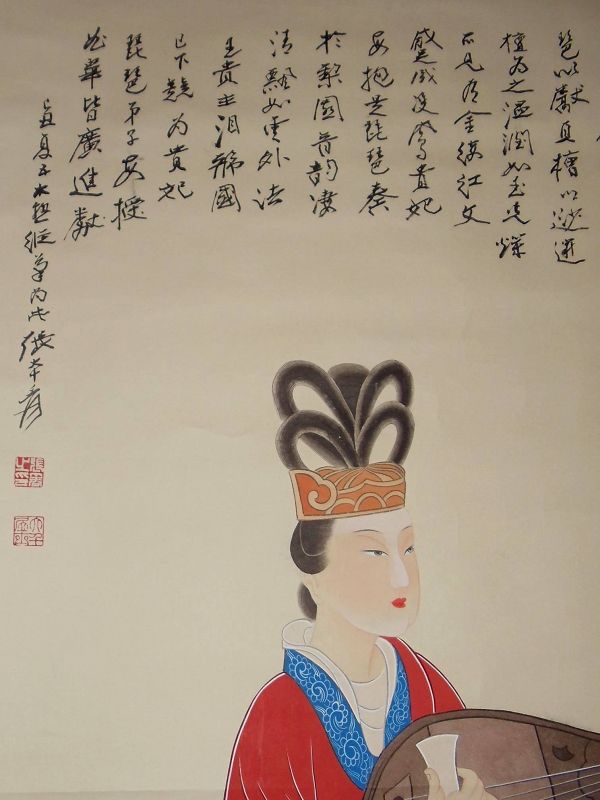 琶以獻其槽以邏逤
檀為之溫潤如玉光
可見有金縷紅文
蹙成雙鳳貴妃
每抱是琵琶奏
於梨園音韻淒
清飄如雲外諸
王貴主洎虢國
已下競為貴妃
琵琶弟子每授
曲畢皆廣進獻
夏五水縱筆為此張大千爰
張爰之印